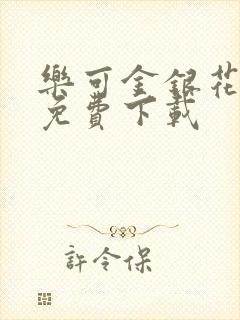 樂可金銀花
免費下載
許令保